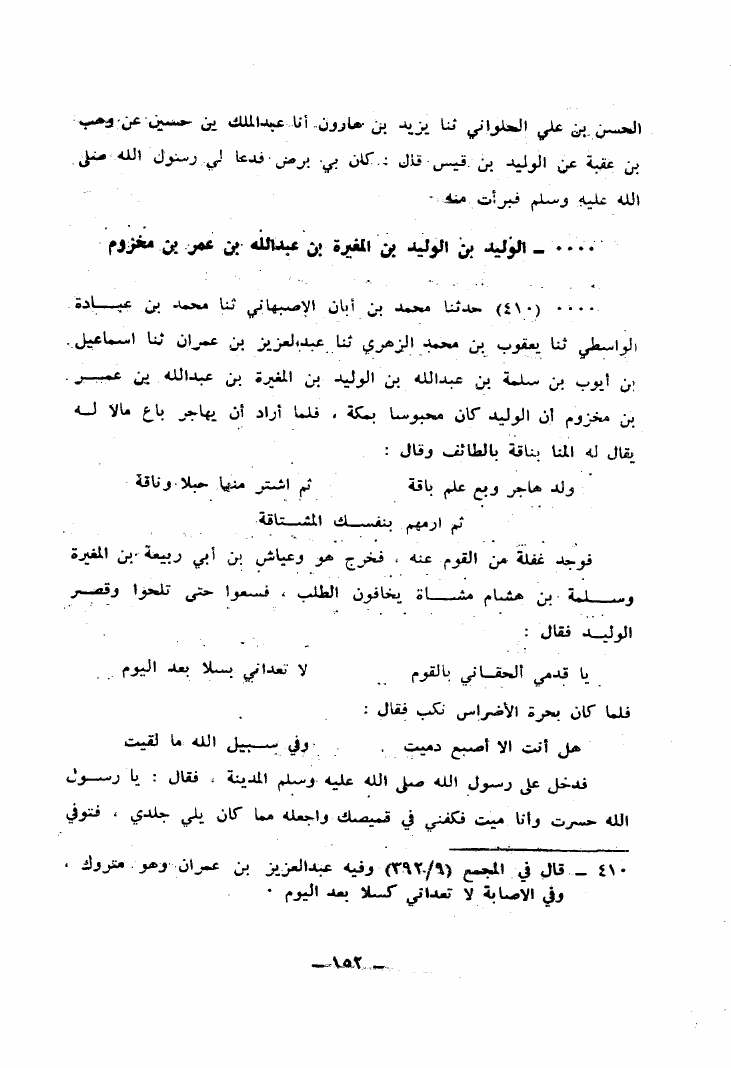 الحسن بن علي الحلواني ثنا يزيد بن هارون أنا عبدالملك بن حسين عن وهب
بن عقبة عن الوليد بن قيس قال : كان بي برص فدعا لي رسول الله صلى
الله عليه وسلم فبرأت منه ٠
٠٠٠٠ ـ الوليد بن الوليد بن المغيرة بن عبدالله بن عمر بن مخزوم
٠٠٠٠ (٤١٠) حدثنا محمد بن أبان الاصبهاني ثنا محمد بن عبـــادة
الواسطي ثنا يعقوب بن محمد الزهري ثنا عبدالعزيز بن عمران ثنا اسماعيل
بن أيوب بن سلمة بن عبدالله بن الوليد بن المغيرة بن عبدالله بن عمـــر
بن مخزوم أن الوليد كان محبوسا بمكة ، فلما أراد أن يهاجر باع مالا لـه
يقال له المنا بناقة بالطائف وقال :
ولد هاجر وبع علم باقة ثم اشتر منها حبلا وناقة
ثم ارمهم بنفســك المشــتاقة
فوجد غفلة من القوم عنه ، فخرج هو وعياش بن أبي ربيعة بن المغيرة
وســـلمة بن هشام مشـــاة يخافون الطلب ، فسعوا حتى تلحوا وقصــر
الوليـد فقال :
يا قدمي ألحقــاني بالقوم لا تعداني بسلا بعد اليوم
فلما كان بحرة الأضراس نكب فقال :
هل أنت الا أصبع دميت وفي ســبيل الله ما لقيت
فدخل على رسول الله صلى الله عليه وسلم المدينة ، فقال : يا رســول
الله حسرت وأنا ميت فكفني في قميصك واجعله مما كان يلي جلدي ، فتوفي
٤١٠ ـ قال في المجمع (٣٩٢/٩) وفيه عبدالعزيز بن عمران وهو متروك ،
وفي الاصابة لا تعداني كسلا بعد اليوم ٠
ـ ١٥٢ ـ